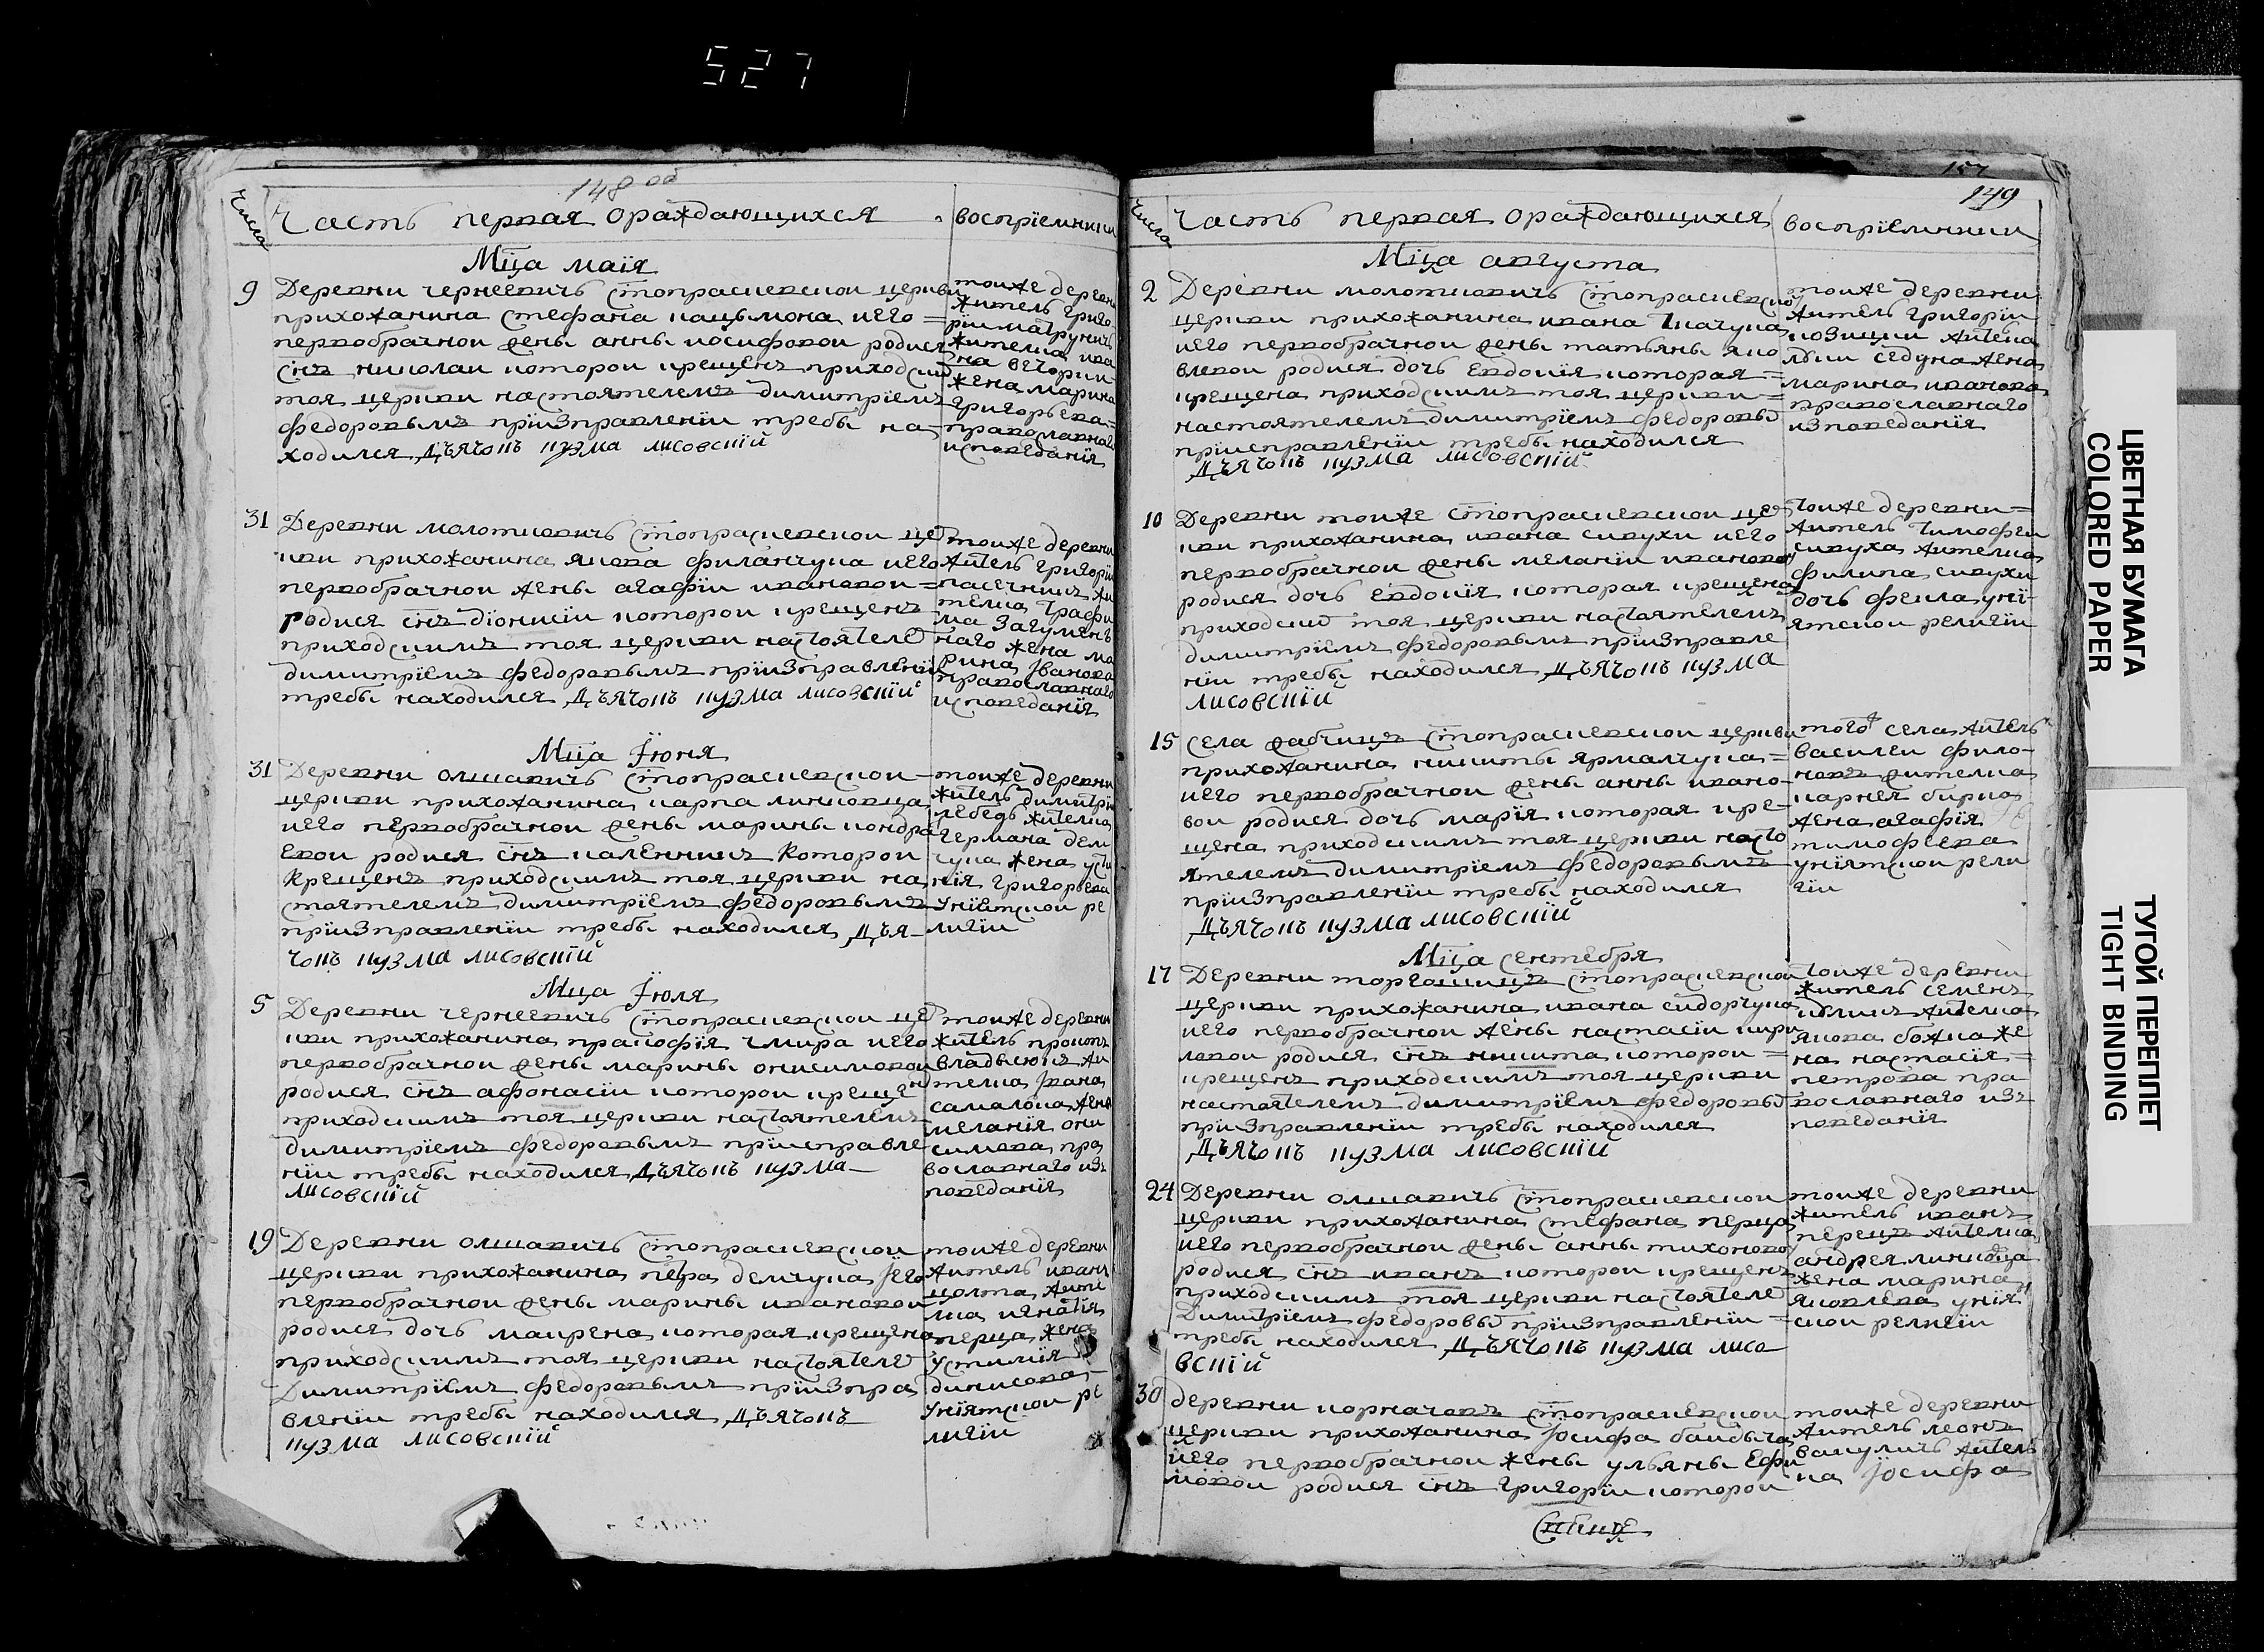 527
148 об
Числа
Часть первая ораждающихся
восприемники
Мца маія
9
Деревни чернеевичъ Стопраскевской церкви
прихожанина стефана кацымона иего =
первобрачной жены анны иосифовой родися
снъ николаи которои крещенъ приходским
тоя церкви настоятелемъ димитріемъ
федоровымъ прiизправленіи требы на-
ходился Дъячокъ кузма лисовскій
тоиже деревни
житель григо
рiи матрунич
жителка ива
на вегорки
жена марина
григорьева
православнаго
исповеданія
31
Деревни молотковичъ Стопраскевской це
ркви прихожанина якова филанчука иего
первобрачной жены агафіи ивановои =
родися снъ діонисіи которои крещенъ
приходскимъ тоя церкви настоятеле
димитріемъ федоровымъ прiизправленіи
требы находился Дъячокъ кузма лисовскій
тоиже деревни
житель григоріи
пасечникъ жи
телка трафи
ма загумен
наго жена ма
рина Іванова
православнаго
исповеданія
Мца Іюня
31
Деревни олшавичъ Стопраскевской
церкви прихожанина карпа линковца
иего первобрачной жены марины кондра
евои родися снъ каленникъ которои
крещенъ приходскимъ тоя церкви на
стоятелемъ димитріемъ федоровымъ
прiизправленіи требы находился Дъя-
чокъ кузма лисовскій
тоиже деревни
житель димитрій
лебедь жителка
германа дем
чука жена усти
нія григорьева
уніятской ре
лигіи
Мца Іюля
5
Деревни чернеевичъ Стопраскевской це
ркви прихожанина пракофія чмира иего
первобрачной жены марины онисимовои
родися снъ афонасіи которои креще
приходскимъ тоя церкви настоятелемъ
димитріемъ федоровымъ прiисправле
ніи требы находился Дъячокъ кузма
лисовскій
тоиже деревни
житель прокопъ
владысюкъ жи
телка Івана
самалюка жена
меланія они
симова пра
вославнаго из
поведанія
19
Деревни олшавичъ Стопраскевской
церкви прихожанина петра демчука Іего
первобрачной жены марины ивановои
родися дочь маирена которая крещена
приходскимъ тоя церкви настоятеле
Димитріемъ федоровымъ прiизпра
вленіи требы находился Дъячокъ
кузма лисовскій
тоиже деревни
житель иванъ
цолта жите
лка игнатія
перца жена
устимія
динисова
уніятской ре
лигіи
157
149
Числа
Часть первая ораждающихся
восприемники
Мца августа
2
Деревни молотковичъ Стопраскевской
церкви прихожанина ивана ткачука
иего первобрачной жены татьяны яко
влевои родися дочь Евдокія которая =
крещена приходскимъ тоя церкви =
настоятелемъ димитріемъ федоровы
прiисправленіи требы находился
Дъячокъ кузма лисовскій
тоиже деревни
житель григоріи
козицки жителка
лькии седуна жена
марина иванова
православнаго
изповеданія
10
Деревни тоиже Стопраскевской це
ркви прихожанина ивана сивухи иего
первобрачной жены меланіи ивановои
родися дочь Евдокія которая крещена
приходским тоя церкви настоятелемъ
димитріемъ федоровымъ прiизправле
ніи требы находился Дъячокъ кузма
лисовскій
тоиже деревни =
житель тимофеи
сивуха жителка
филипа сивухи
дочь фекла уні-
ятской религіи
15
Села жабчицъ Стопраскевской церкви
прихожанина никиты ярмалчука =
иего первобрачной жены анны ивано-
вои родися дочь марія которая кре-
щена приходскимъ тоя церкви насто
ятелемъ димитріемъ федоровымъ
прiизправленіи требы находился
Дъячокъ кузма лисовскій
того села житель
василеи фило-
новъ жителка
карнея бирка
жена агафія
тимофеева
уніятской рели
гіи
Мца сентебря
17
Деревни торгошицъ Стопраскевской
церкви прихожанина ивана сидорчука
иего первобрачной жены настасіи кири
ловои родися снъ никита которои =
крещенъ приходскимъ тоя церкви
настоятелемъ димитріемъ федоровы
прiизправленіи требы находился
Дъячокъ кузма лисовскій
тоиже деревни
житель семенъ
жителка
якова божка же
на настасія =
петрова пра
вославнаго из
поведанія
24
Деревни олшавичъ Стопраскевской
церкви прихожанина стефана перца
иего первобрачной жены анны тихоновои
родися снъ иванъ которои крещенъ
приходскимъ тоя церкви настоятеле
Димитріемъ федоровы прiизправленіи =
требы находился Дъячокъ кузма лисо
вскій
тоиже деревни
житель иванъ
перецъ жителка
андрея линковца
жена марина
яковлева уния
ской религіи
30
деревни корначовъ Стопраскевской
церкви прихожанина Іосифа баидыча
иего первобрачной жены ульяны Ефи
мовои родися снъ григоріи которои
тоиже деревни
житель леонъ
вакуличъ житель
ка Іосифа
ЦВЕТНАЯ БУМАГА
COLORED PAPER
ТУГОЙ ПЕРЕПЛЕТ
TIGHT BINDING